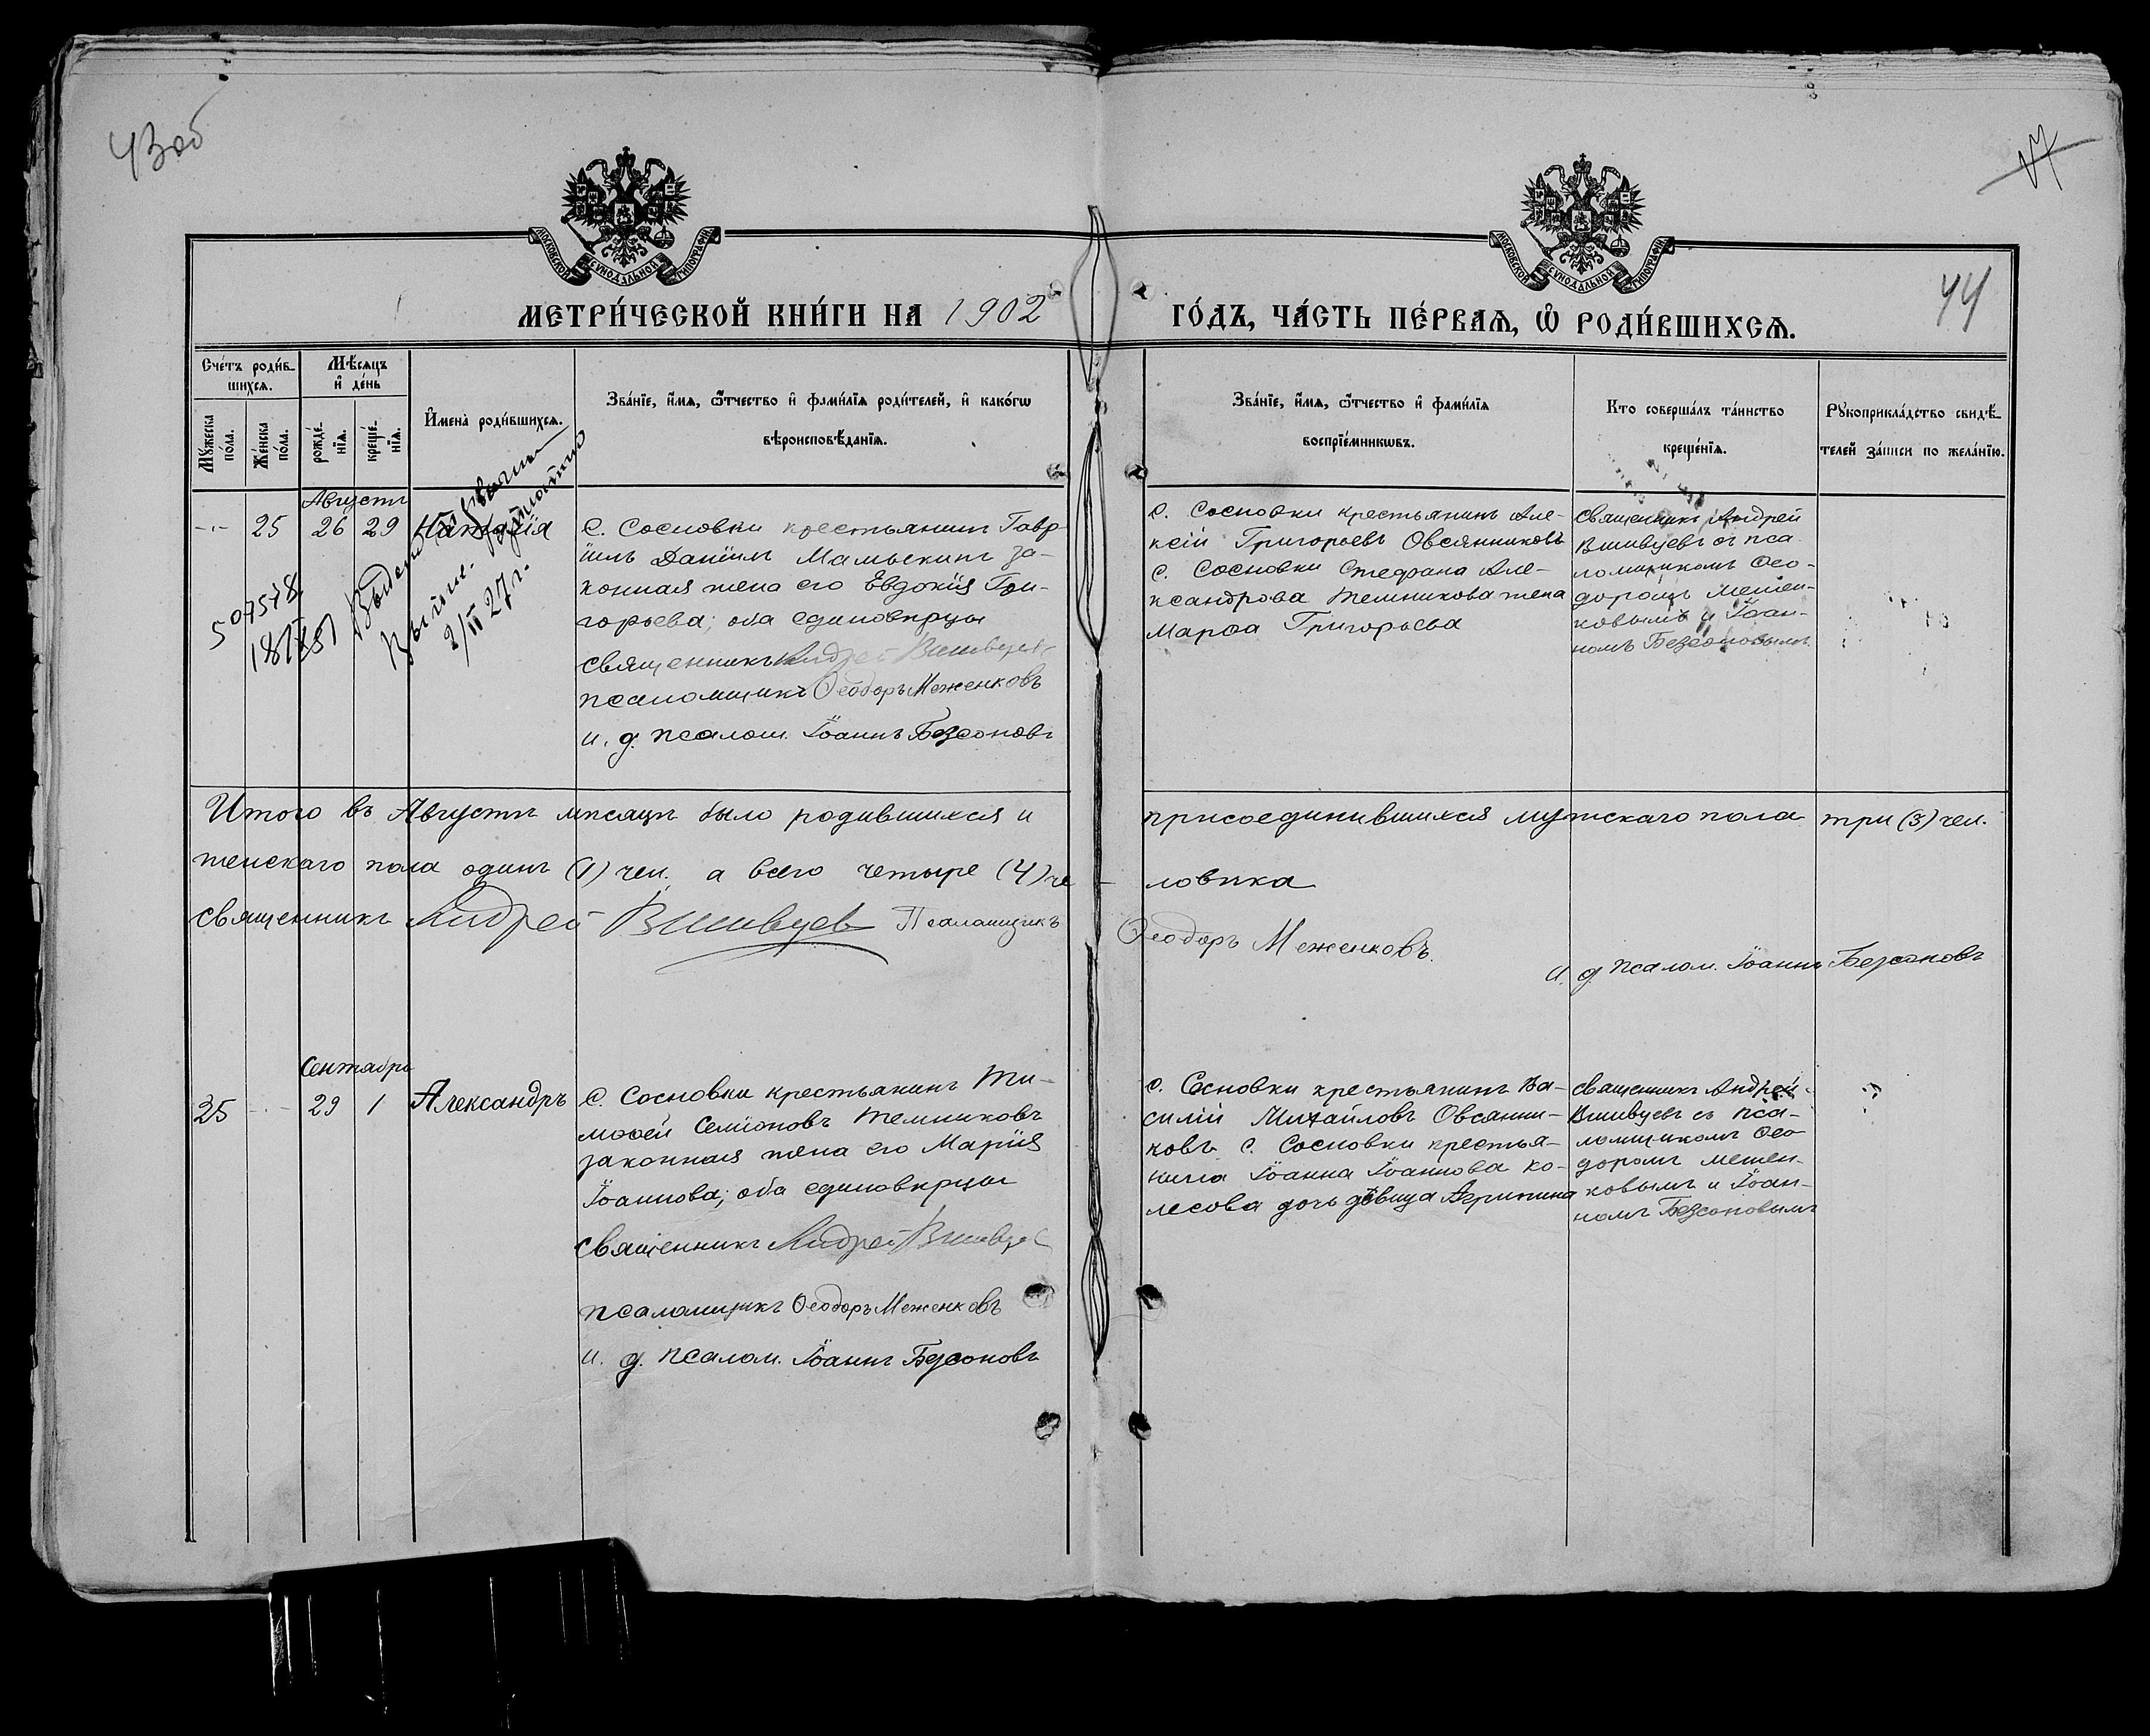 43об
44
МОСКОВСКОЙ СУНОДАЛЬНОЙ ТИПОГРАФІИ
МОСКОВСКОЙ СУНОДАЛЬНОЙ ТИПОГРАФІИ
МЕТРИ́ЧЕСКОЙ КНИ́ГИ НА 1902
ГО́ДЪ, ЧА́СТЬ ПЕ́РВАѦ, Ѽ РОДИ́ВШИХСѦ.
Сче́тъ роди́в-
шихсѧ.
Мѣ́сѧцъ
и҆ де́нь
Мꙋ́жеска
по́ла.
Же́нска
по́ла.
рожде́-
нїѧ.
креще́-
нїѧ.
И҆мена̀ роди́вшихсѧ.
Зва́нїе, и҆́мѧ, ѻ҆́тчество и҆ фамѝлїѧ роди́телей, и҆ како́гѡ
вѣроисповѣ́данїѧ.
Зва́нїе, и҆́мѧ, ѻ҆́тчество и҆ фамѝлїѧ
воспрїе́мникѡвъ.
Кто соверша́лъ та́инство
креще́нїѧ.
Рꙋкоприкла́дство свидѣ́-
телей за́писи по жела́нїю.
Августъ
25 26 29 Наталія
507578
2/II 27 г.
С. Сосновки крестьянинъ Гавр-
іилъ Даніилъ Мамыкинъ за-
конная жена его Евдокія Гри-
горьева; оба единовѣрцы
священникъ Андрей Вшивцевъ
псаломщикъ Ѳеодоръ Меженковъ
и. д. псалом. Іоаннъ Безсоновъ
С. Сосновки крестьянинъ Але-
ксій Григорьевъ Овсянниковъ
С. Сосновки Стефана Але-
ксандрова Темникова жена
Марѳа Григорьева
священникъ Андрей
Вшивцевъ съ пса-
ломщикомъ Ѳео-
доромъ Межен-
ковымъ и Іоан-
номъ Безсоновымъ
Итого въ Августѣ мѣсяцѣ было родившихся и присоединившихся мужскаго пола три (3) чел.
женскаго пола одинъ (1) чел. а всего четыре (4) че-ловѣка
священникъ Андрей Вшивцев Псаломщикъ Ѳеодоръ Меженковъ.
и. д. псалом. Іоаннъ Безсоновъ
Сентябрь
35 29 1 Александръ
С. Сосновки крестьянинъ Ти-
моѳей Семіоновъ Темниковъ
законная жена его Марія
Іоаннова; оба единовѣрцы
священникъ Андрей Вшивцев
псаломщикъ Ѳеодоръ Меженковъ
и. д. псалом. Іоаннъ Безсоновъ
С. Сосновки крестьянинъ Ва-
силій Михайловъ Овсянни-
ковъ С. Сосновки крестья-
нина Іоанна Іоаннова Ко-
лесова дочь дѣвица Агрипина
священникъ Андрей
Вшивцевъ съ пса-
ломщикомъ Ѳео-
доромъ Межен-
ковымъ и Іоан-
номъ Безсоновымъ